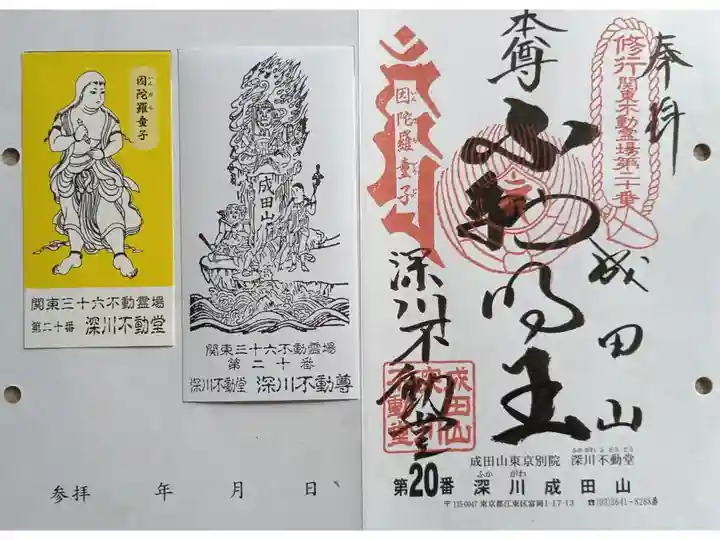 因陀羅童子
いんだらどうじ
関東三十六不動霊場
第二十番 深川不動堂
成田山
関東三十六不動霊場
第二十番
深川不動堂 深川不動尊
参拝 年 月 日
奉拝
修行
関東不動霊場第二十番
本尊
不動明王
因陀羅童子
成田山
深川不動堂
成田山
不動堂
成田山東京別院 深川不動堂
ふかがわふどうどう
第20番 深川成田山
ふかがわ
〒135-0047 東京都江東区富岡1-17-13 ☎(03)3641-8288番